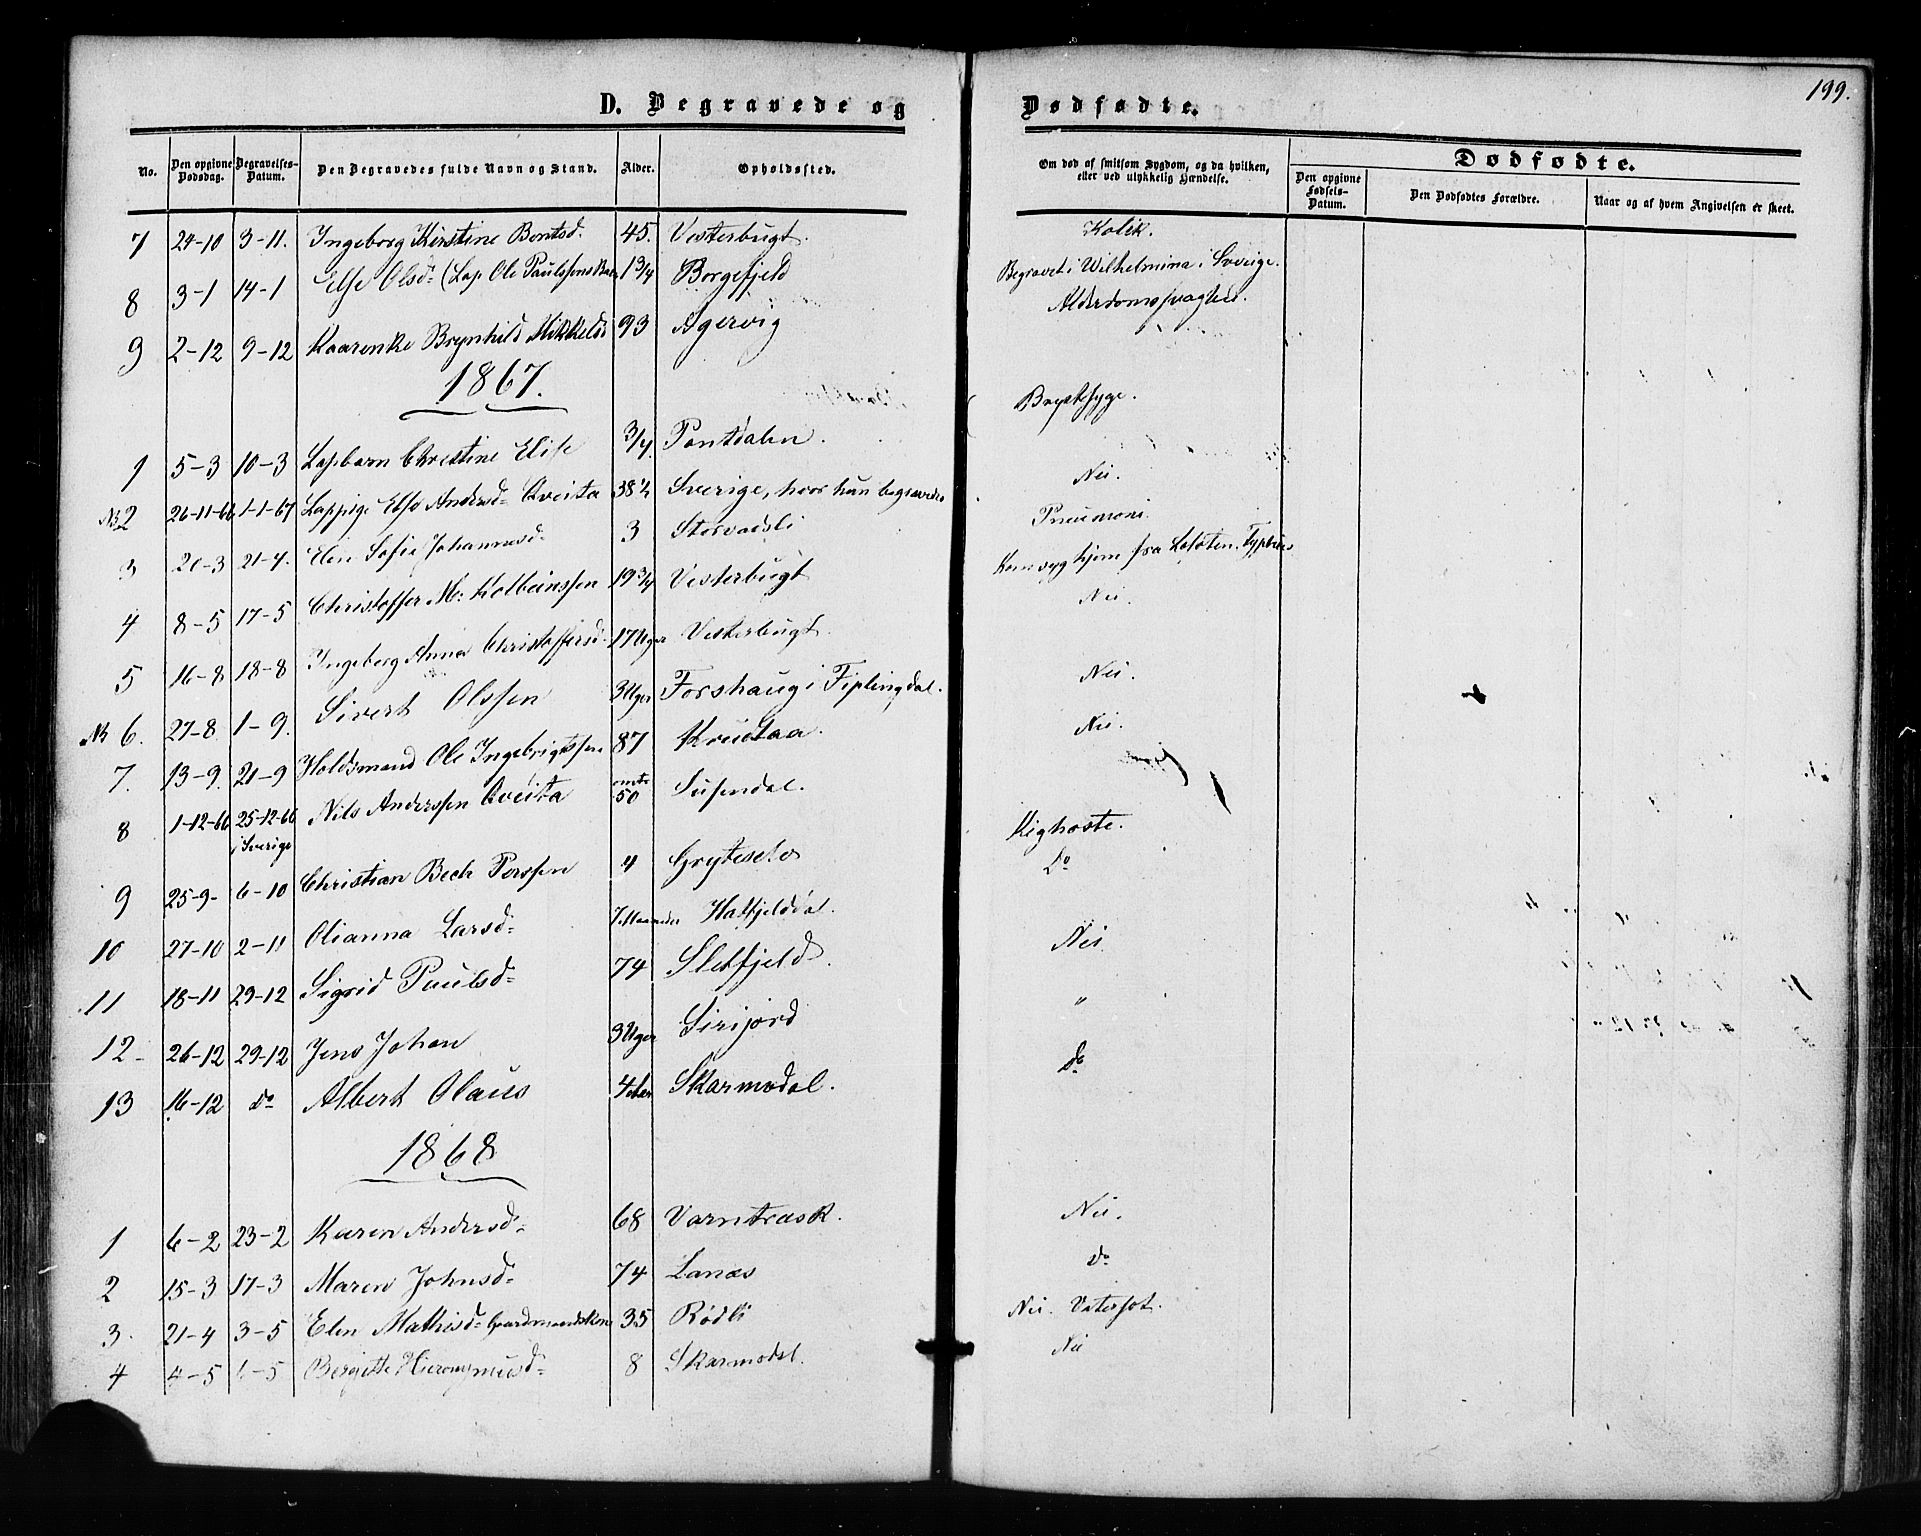 199.
D. Begravede og Dødfødte.
No. | Den opgivne Dødsdag. | Begravelses-Datum. | Den Begravedes fulde Navn og Stand. | Alder. | Opholdssted. | Om død af smitsom Sygdom, og da hvilken, eller ved ulykkelig Hændelse. | Dødfødte. | Den opgivne Fødsels-Datum. | Den Dødfødtes Forældre. | Naar og af hvem Angivelsen er skeet.
7 | 24-10 | 3-11. | Ingeborg Kirstine Bentsd. | 45. | Vesterbugt. | Kolik.
8 | 3-1 | 14-1 | Else Olsd: (Lap Ole Paulssens Barn | 1 3/4 | Borgefjeld | Begravet i Wilhelmina i Sverige.
9 | 2-12 | 9-12 | Kaarenke Brynhild Mikkelsd | 93 | Agervig | Alderdomssvaghed.
1867.
1 | 5-3 | 10-3 | Lapbarn Christine Elise | 3/4 | Pantdalen. | Brystsyge.
NB 2 | 26-11-66 | 1-1-67 | Lappige Else Andersd= Kveita | 38 1/2 | Sverige, hvor hun begravedes | Nei.
3 | 21-3 | 21-4. | Elen Sofie Johannesd= | 3 | Storvadsli | Pneumoni.
4 | 8-5 | 17-5 | Christoffer M: Kolbeinssen | 19 3/4 | Vesterbugt | Kom syg hjem fra Lofoten. Typhus
5 | 16-8 | 18-8 | Ingeborg Anna Christoffersd= | 17 Uger | Vesterbugt. | Nei.
NB 6. | 27-8. | 1-9. | Sivert Olssen | 3 Uger | Forshaug i Fiplingdal. | Nei.
7. | 13-9. | 21-9 | Holdsmand Ole Ingebrigtssen | 87 | Krutaa. | Nei.
8 | 1-12-66 | 25-12-66 i Sverige | Nils Anderssen Kveita | omtr 50 | Susendal.
9 | 25-9- | 6-10 | Christian Bech Perssen | 4 | Gryteselv | Kighoste.
10 | 27-10 | 2-11 | Olianna Larsd= | 7 Maaneder | Hatfjelddal. | Do
11 | 18-11 | 29-12 | Sigrid Paulsd= | 74 | Sletfjeld. | Nei
12- | 26-12 | 29-12 | Jens Johan | 3 Uger | Sirijord | "
13 | 16-12 | do | Albert Olaus | 4 | Skarmodal. | do
1868
1 | 6-2 | 23-2 | Karen Andersd= | 68 | Varntræsk. | Nei.
2 | 15-3 | 17-3 | Maren Johnsd= | 74 | Lanæs | do
3. | 21-4 | 3-5 | Elen Mathisd= Gaardmandskone | 35 | Rødli | Nei. Vatersot.
4 | 4-5 | 6-5 | Bergitte Hieronymusd= | 8 | Skarmodal. | Nei